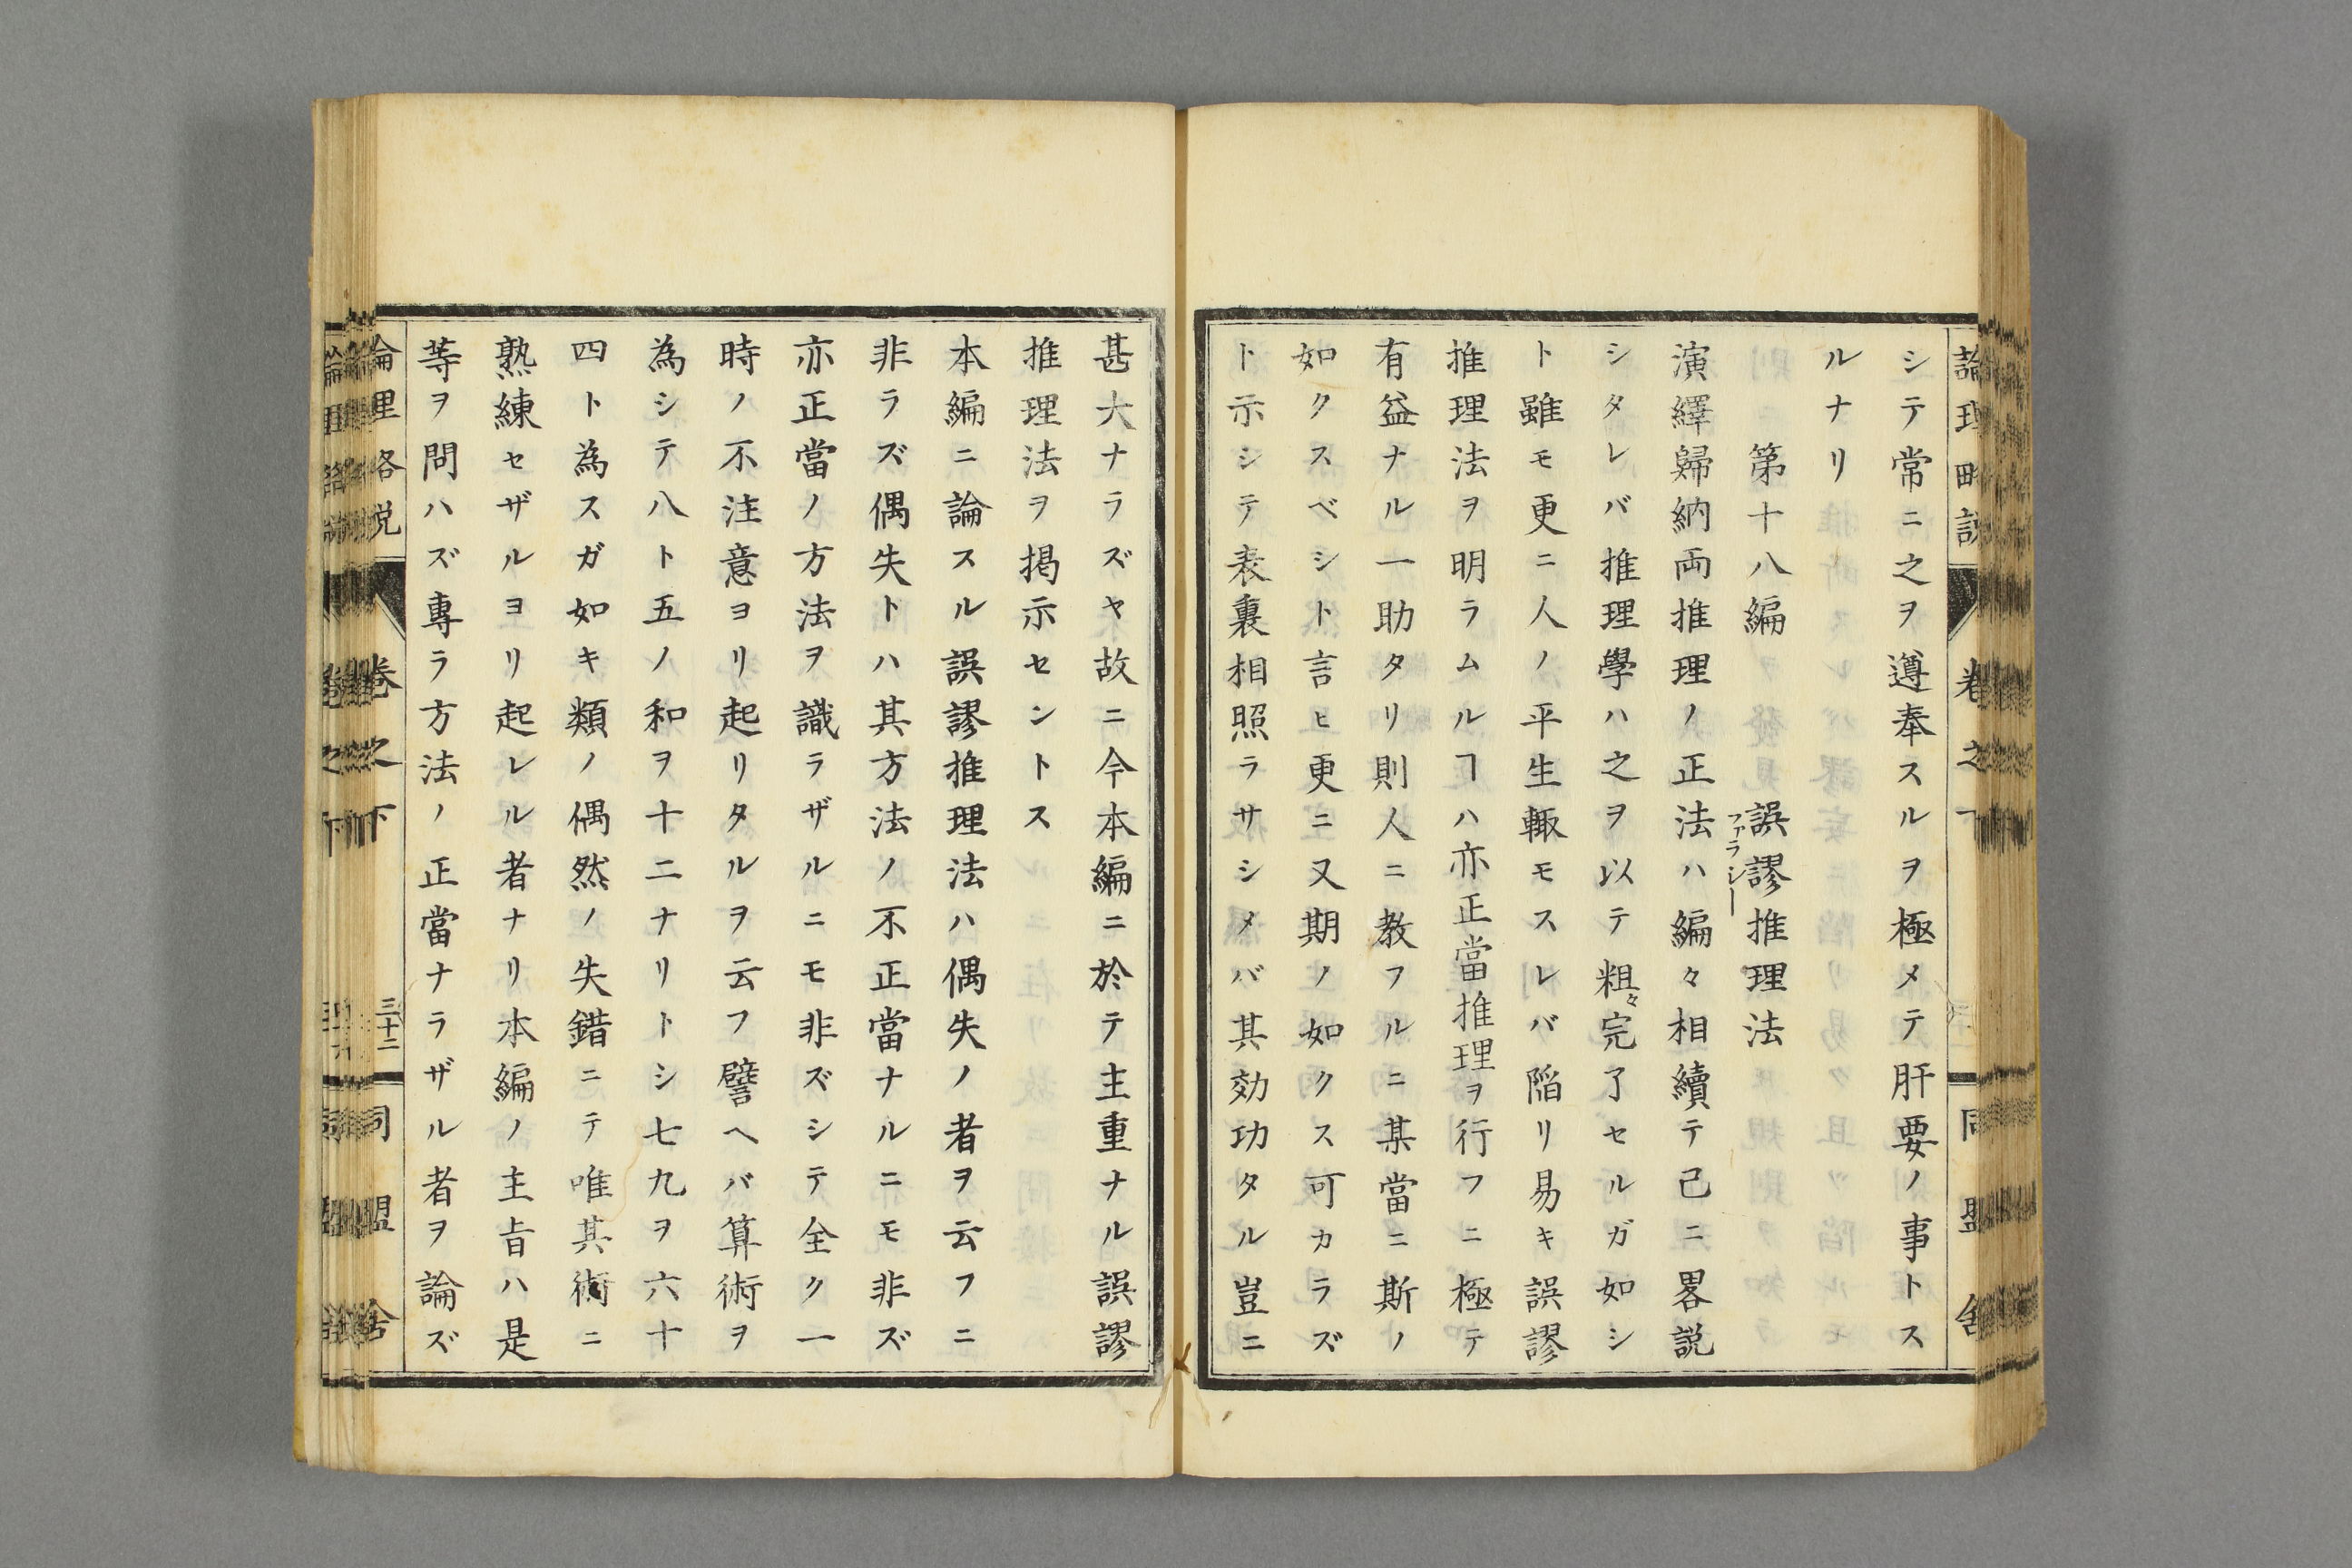 シテ常ニ之ヲ遵奉スルヲ極メテ肝要ノ事トス
ルナリ
第十八編 誤謬推理法
ファラシー
演繹歸納両推理ノ正法ハ編々相續テ已ニ畧説
シタレバ推理學ハ之ヲ以テ粗々完了セルガ如シ
ト雖モ更ニ人ノ平生輙モスレバ陥リ易キ誤謬
推理法ヲ明ラムルヿハ亦正當推理ヲ行フニ極テ
有益ナル一助タリ則人ニ教フルニ某當ニ斯ノ
如クスベシト言ヒ更ニ又期ノ如クス可カラズ
ト示シテ表裏相照ラサシメバ其効功タル豈ニ
甚大ナラズヤ故ニ今本編ニ於テ主重ナル誤謬
推理法ヲ掲示セントス
本編ニ論スル誤謬推理法ハ偶失ノ者ヲ云フニ
非ラズ偶失トハ其方法ノ不正當ナルニモ非ズ
亦正當ノ方法ヲ識ラザルニモ非ズシテ全ク一
時ノ不注意ヨリ起リタルヲ云フ譬ヘバ算術ヲ
為シテ八ト五ノ和ヲ十二ナリトシ七九ヲ六十
四ト為スガ如キ類ノ偶然ノ失錯ニテ唯其術ニ
熟練セザルヨリ起レル者ナリ本編ノ主旨ハ是
等ヲ問ハズ專ラ方法ノ正當ナラザル者ヲ論ズ
卷之下
三十二
同盟舍